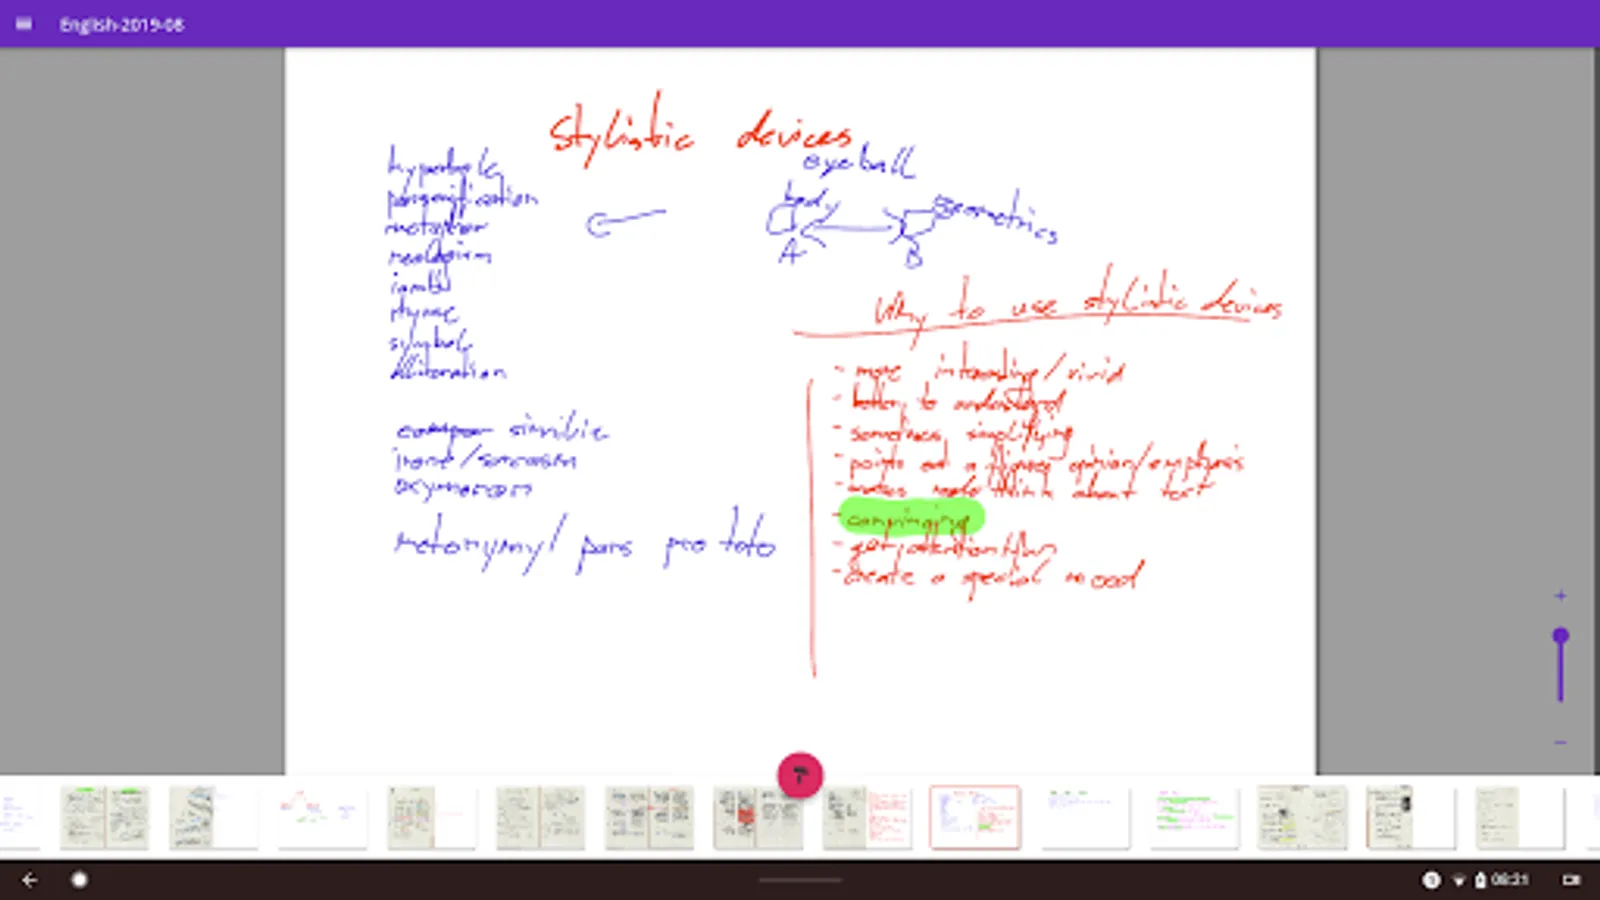 English-2019-08
Stylistic devices
hyperbole
personification
metapher
neologism
iambus
rhyme
symbols
Alliteration
eyeball
body
geometrics
A
B
Why to use stylistic devices
- more interesting/vivid
- better to understand
- sometimes simplifying
- points out a opinion/emphasis
- makes think about text
- convinging
- get attention/
- create a special mood
compar similie
irone/sarcasm
oxymoron
metonymy/ pars pro toto
08:21